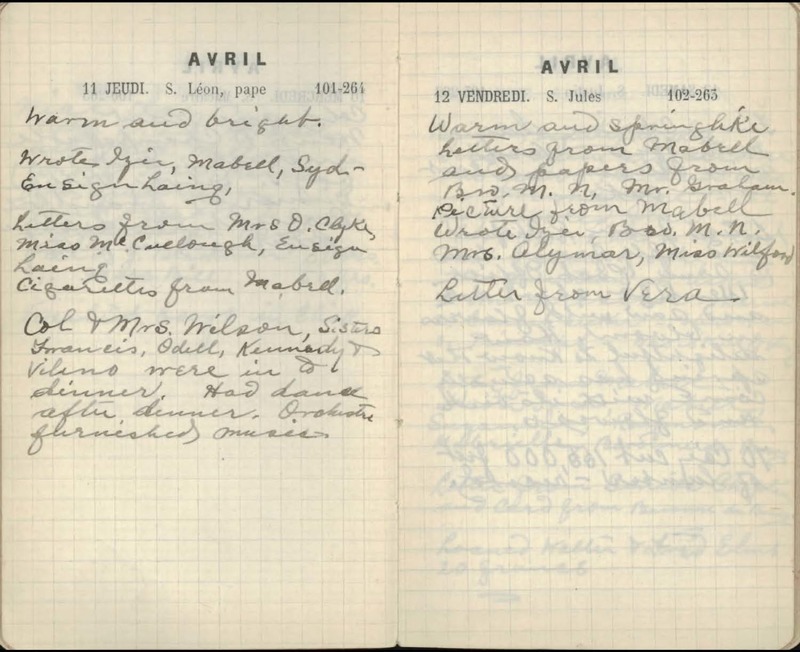 AVRIL
11 JEUDI. S. Léon, pape 101-264
Warm and bright.
Wrote Izie, Mabell, Syd.-
Ensign Laing,
Letters from Mrs O. Clyke,
Miss McCullough, Ensign
Laing
Cigarettes from Mabell.
Col & Mrs. Wilson, Sisters
Francis, Odell, Kennedy &
were in to
dinner. Had dance
after dinner. Orchestra
furnished music
AVRIL
12 VENDREDI. S. Jules 102-263
Warm and springlike
Letters from Mabell
and papers from
Bro. M. N, Mr. Graham.
Picture from Mabell
Wrote Izie, Bro. M. N.
Mrs. Alymar, Miss Wilford
Letter from Vera.